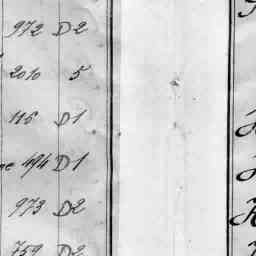 972 D2
2010 5
116 D1
ne 494 D1
973 D2
759 D2